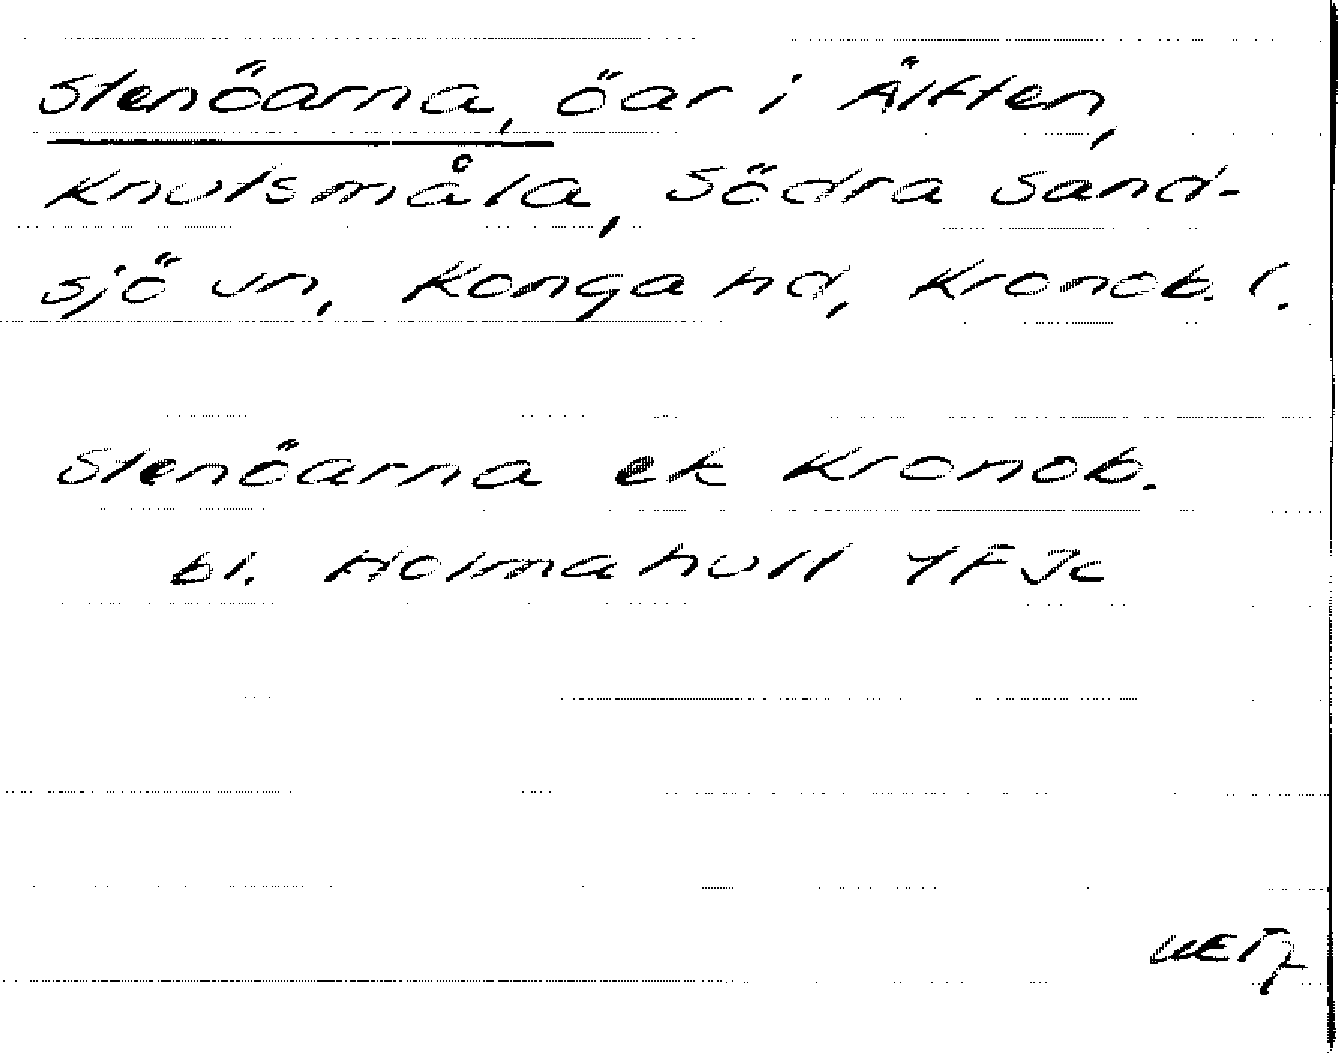 Stenöarna, öar i Älften,
Knutsmåla, Södra Sand-
sjö sn, Konga hd, Kronob. l.
Stenöarna ek Kronob.
bl. Holmahult 4F Jc